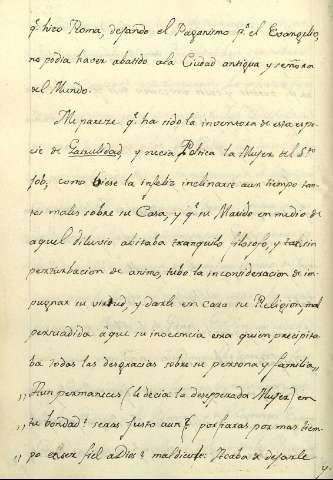 q.e hizo Roma, dejando el Paganismo p.r el Evangelio,
no podia haver abatido ala Ciudad antigua y señora
del Mundo.
Me pareze q.e ha sido la inventora de esta espe-
cie de y necia Politica la Muger del S.to
Job, como biese la infeliz inclinarse aun tiempo tan-
tos males sobre su Casa, y q.e su Marido en medio de
aquel diluvio abitaba tranquilo filosofo, y tan sin
perturbacion de animo, tubo la inconsideracion de im-
pugnar su virtud, y darle en cara su Religion, mal
persuadida á que su inocencia era quien precipita-
ba todas las desgracias sobre su persona y familia,,
,, Aun permaneces (le decia la desesperada Muger) en
,, tu bondad? seras justo aun? porfiaras por mas tiem-
,, po en ser fiel a Dios? maldicele: Acaba de dejarle
y